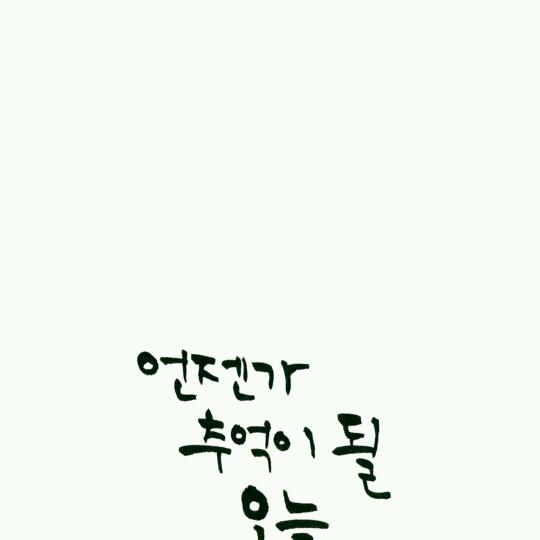 언젠가
추억이 될
오늘